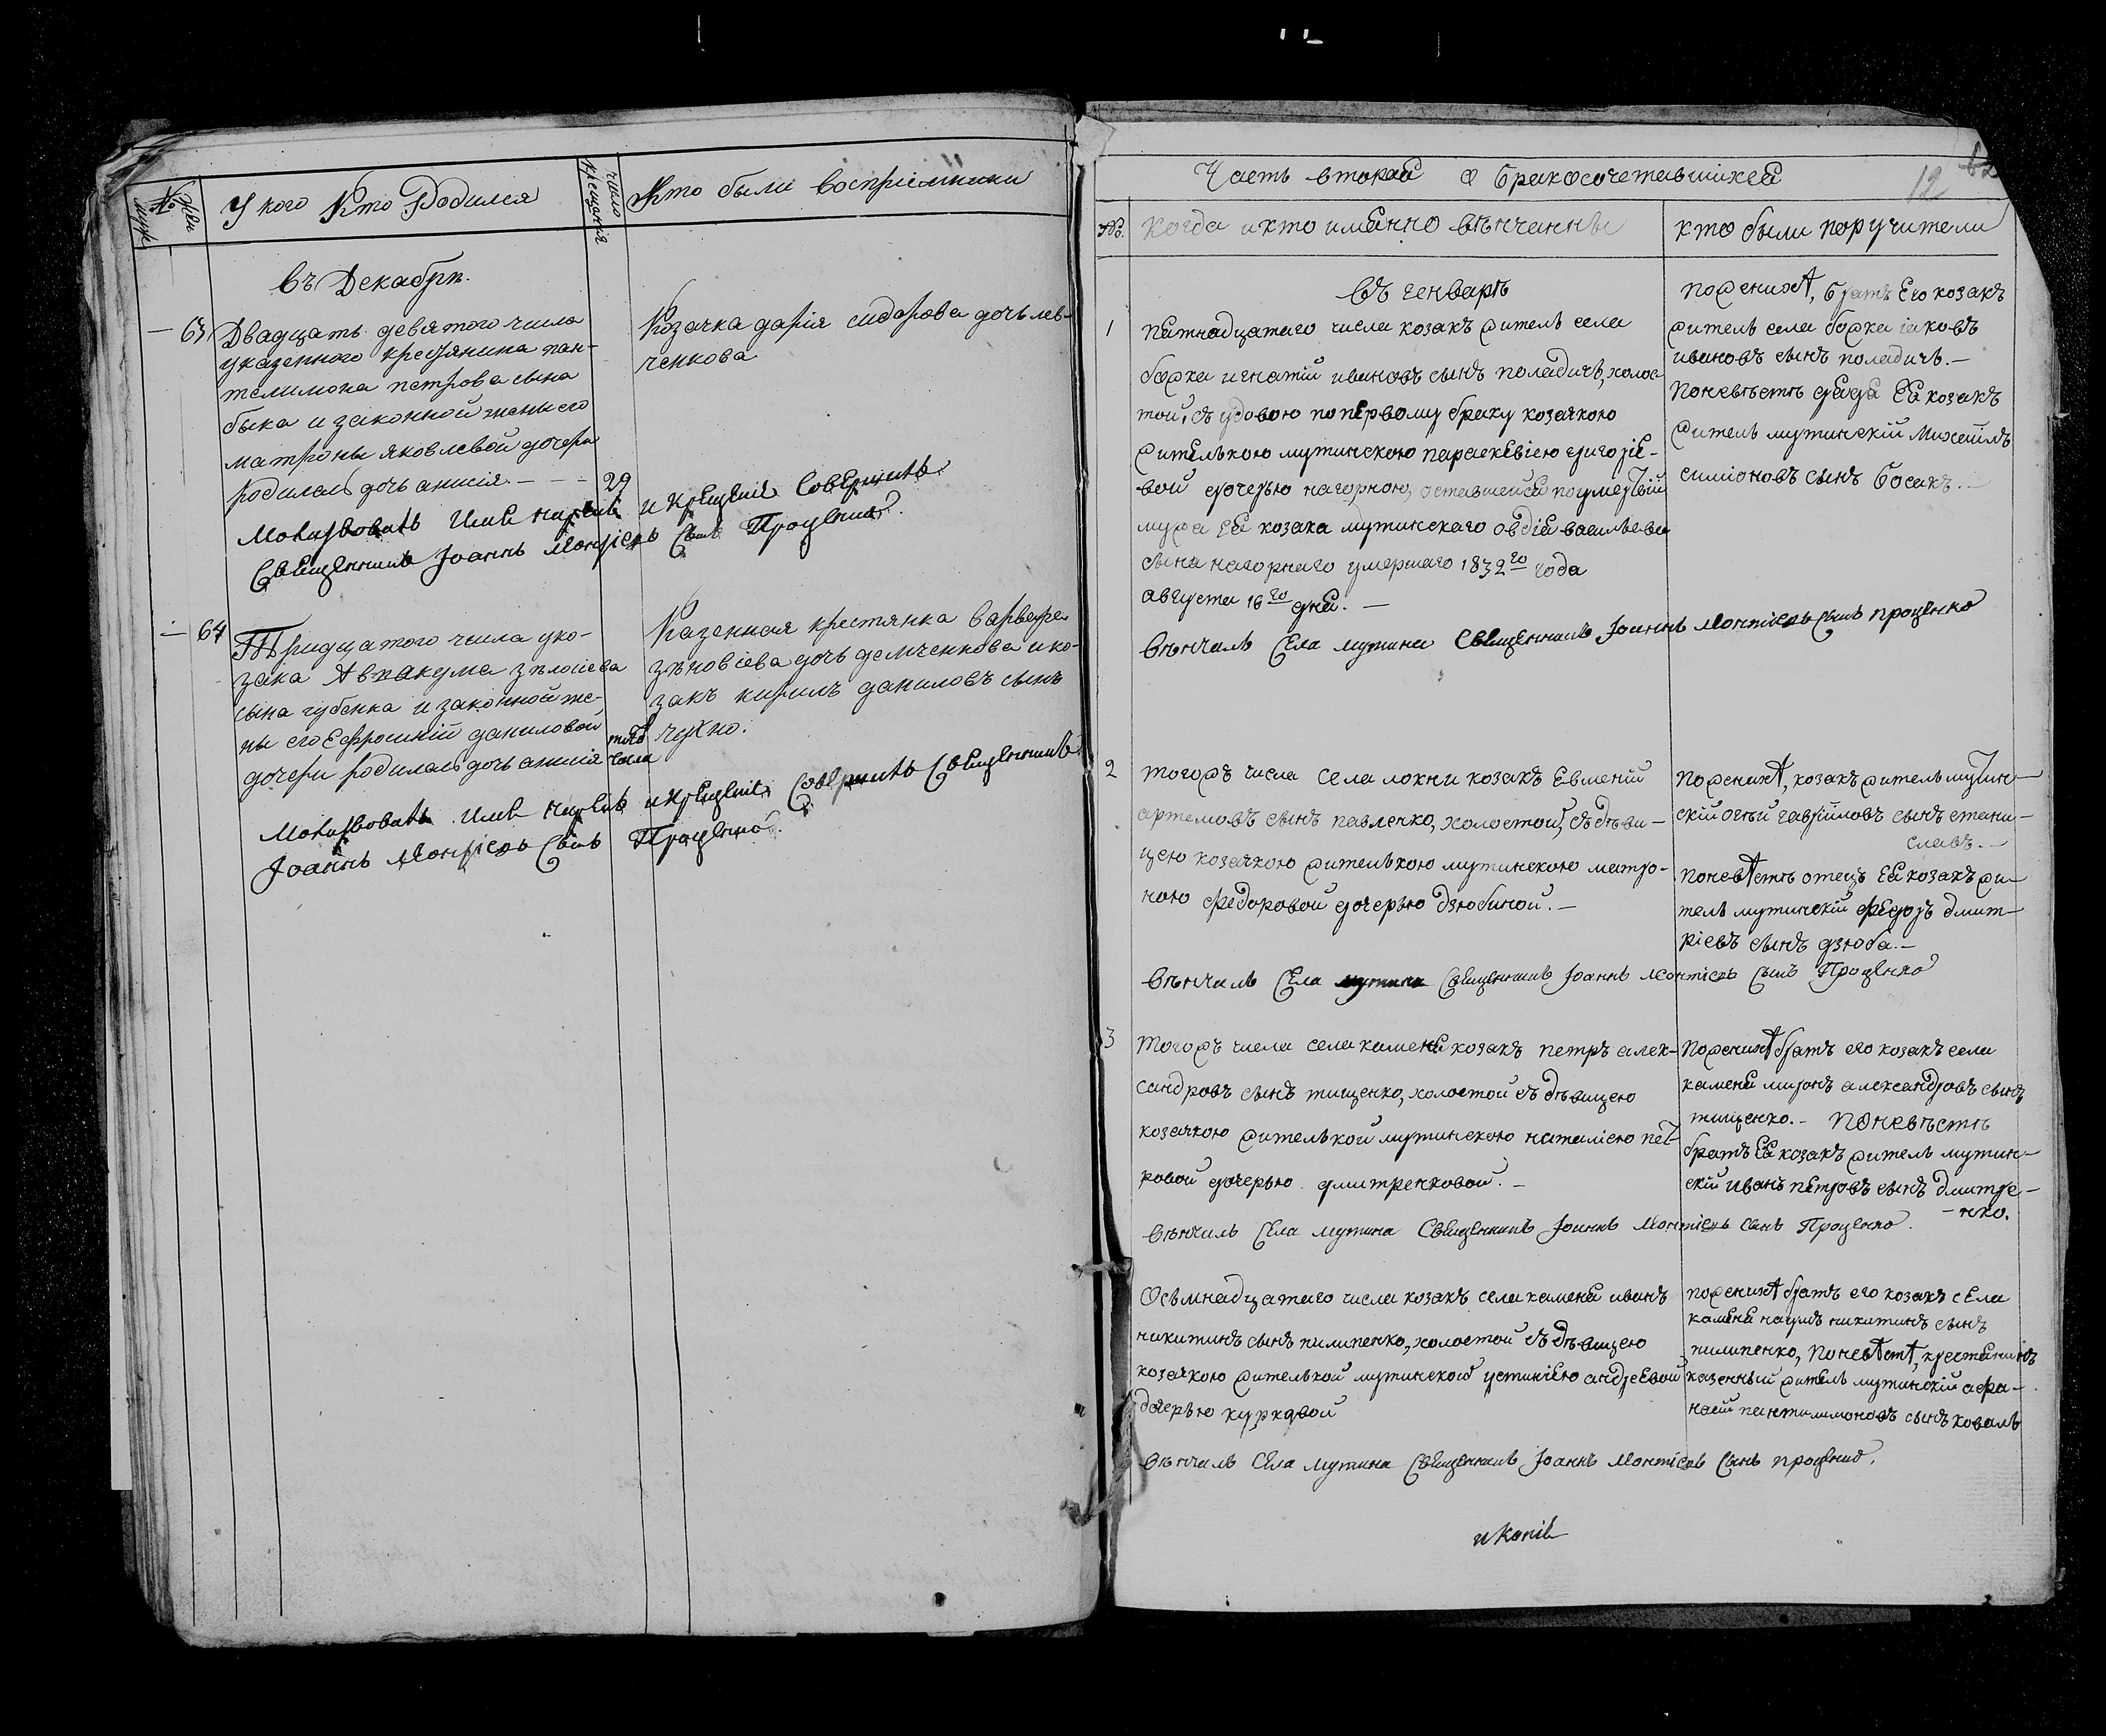 № муж
жен
У кого Кто Родился
число крещенія
Кто были воспріемники
въ Декабрѣ.
— 63 Двадцать девятого числа
у казенного крестянина пан-
телимона петрова сына
быка и законной жены его
матроны яковлевой дочери
родилась дочь анисія. — — — 29
Козачка дарія сидорова дочь лев-
ченкова
Молитвовалъ Имя нареклъ и Крещеніе Совершилъ
Священникъ Іоаннъ Монсіевъ Сынъ Проценко.
— 64 Тридцатого числа у ко-
зака Аввакума
сына губенка и законной же-
ны его Ефросиніи даниловой
дочери родилась дочь анисія
того числа
Казенная крестянка варвара
зѣновіева дочь демченкова и ко-
закъ кирилъ даниловъ сынъ
чухно.
Молитвовалъ Имя нареклъ и Крещеніе Совершилъ Священникъ
Іоаннъ Монсіевъ Сынъ Проценко.
12
Часть вторая О Бракосочетавшихся
№.
Когда и кто имянно вѣнчанны
кто были поручители
въ генварѣ
1
пятнадцатаго числа козакъ житель села
божка игнатій ивановъ сынъ поладичъ, холос-
той, съ удовою по первому браку козачкою
жителькою мутинскою параскевіею григорье-
вой дочерью нагорною, оставшейся по умертвіи
мужа ея козака мутинскаго овдія васильева
сына нагорнаго умершаго 1832го года
августа 16го дня. —
по женихѣ, братъ Его козакъ
житель села божка іаковъ
ивановъ сынъ поладичъ. —
По невѣстѣ дядя Ея козакъ
житель мутинскій Михаилъ
симіоновъ сынъ босакъ. —
вѣнчалъ Села мутина Священникъ Іоаннъ Монсіевъ Сынъ проценко
2
тогожъ числа села локни козакъ Евменій
артемовъ сынъ павленко, холостой, съ дѣви-
цею козачкою жителькою мутинскою матро-
ною федоровой дочерью дзюбиной. —
по женихѣ, козакъ житель мутин-
скій гавріиловъ сынъ стани-
славъ. —
по невѣстѣ отецъ Ея козакъ жи-
тель мутинскій федоръ дмит-
ріевъ сынъ дзюба. —
вѣнчалъ Села мутина Священникъ Іоаннъ Монсіевъ Сынъ Проценко
3
тогожъ числа села каменя козакъ петръ алек-
сандровъ сынъ тищенко, холостой съ дѣвицею
козачкою жителькой мутинскою наталіею пет-
ровой дочерью дмитренковой. —
По женихѣ братъ его козакъ села
каменя миронъ александровъ сынъ
тищенко. — По невѣстѣ
братъ Ея козакъ житель мутин-
скій иванъ петровъ сынъ дмитре-
— нко.
вѣнчалъ Села мутина Священникъ Іоаннъ Монсіевъ сынъ Проценко.
Осьмнадцатаго числа козакъ села каменя иванъ
никитинъ сынъ пилипенко, холостой съ дѣвицею
козачкою жителькой мутинскою устиніею андреевой
дочерью курковой
по женихѣ братъ его козакъ села
каменя наумъ никитинъ сынъ
пилипенко, по невѣстѣ, крестянинъ
казенный житель мутинскій афа-
насій пантилимоновъ сынъ коваль
вѣнчалъ Села мутина Священникъ Іоаннъ Монсіевъ Сынъ проценко.